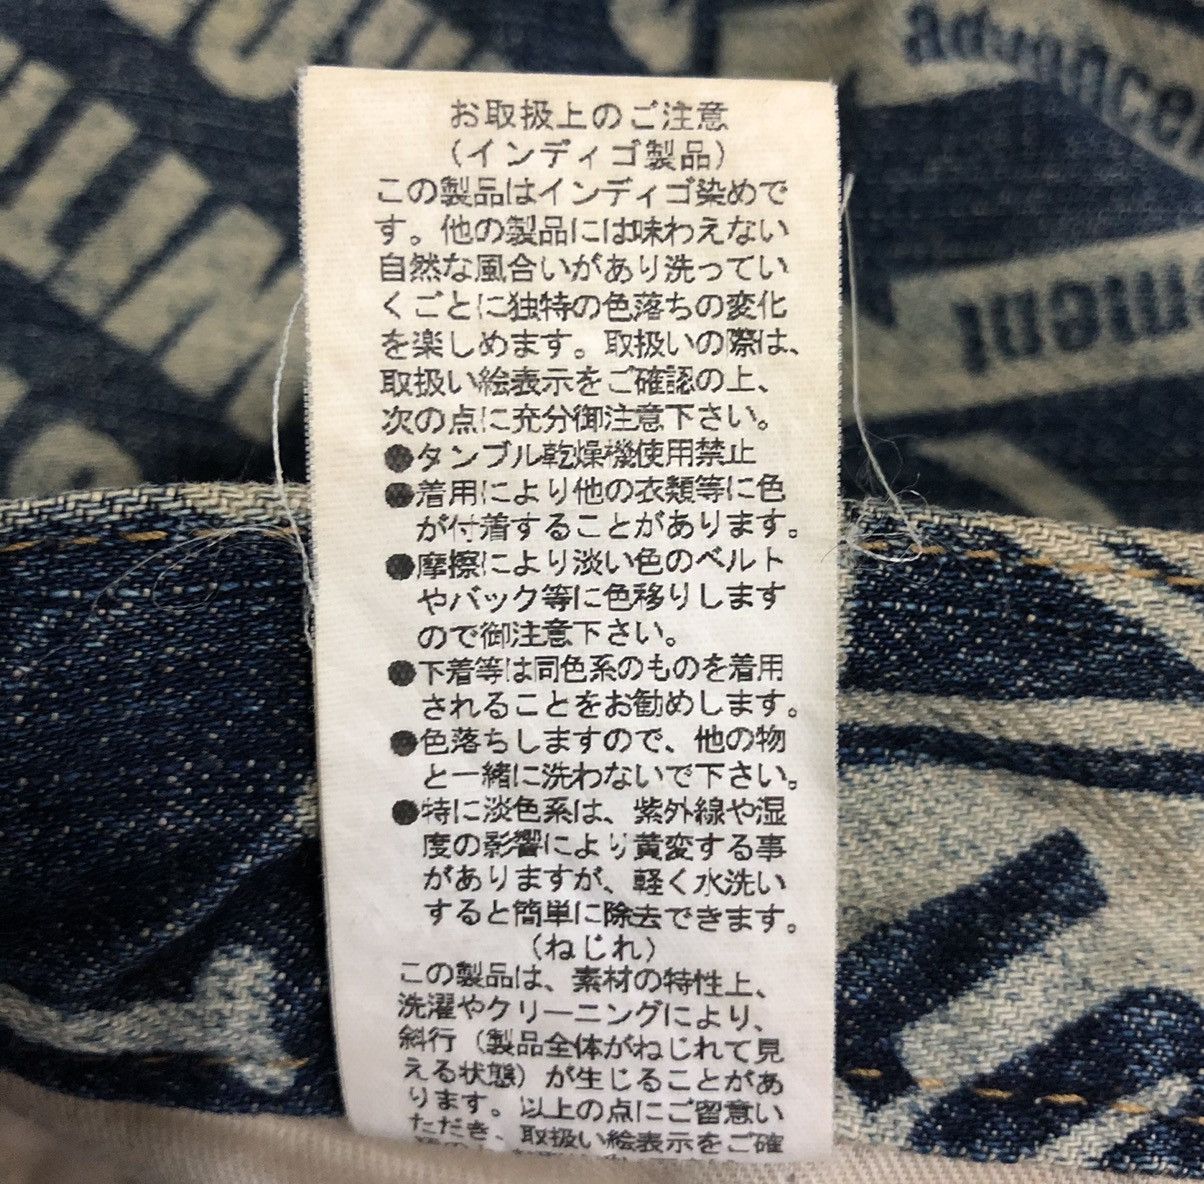 お取扱上のご注意
(インディゴ製品)
この製品はインディゴ染めで
す。他の製品には味わえない
自然な風合いがあり洗ってい
くごとに独特の色落ちの変化
を楽しめます。取扱いの際は、
取扱い絵表示をご確認の上、
次の点に充分御注意下さい。
●タンブル乾燥機使用禁止
●着用により他の衣類等に色
が付着することがあります。
●摩擦により淡い色のベルト
やバック等に色移りします
ので御注意下さい。
●下着等は同色系のものを着用
されることをお勧めします。
●色落ちしますので、他の物
と一緒に洗わないで下さい。
●特に淡色系は、紫外線や湿
度の影響により黄変する事
がありますが、軽く水洗い
すると簡単に除去できます。
(ねじれ)
この製品は、素材の特性上、
洗濯やクリーニングにより、
斜行(製品全体がねじれて見
える状態)が生じることがあ
ります。以上の点にご留意い
ただき、取扱い絵表示をご確
advancer
ment